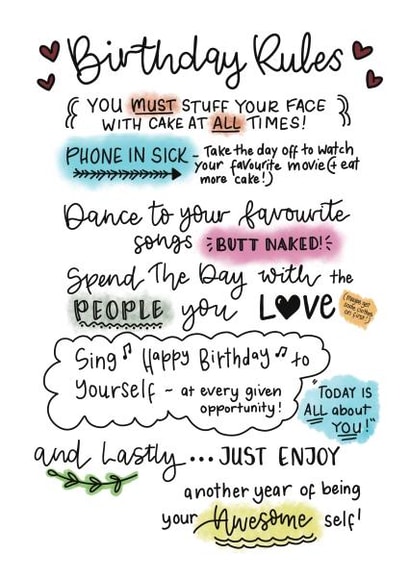 Birthday Rules
{{ YOU MUST STUFF YOUR FACE }}
WITH CAKE AT ALL TIMES!
PHONE IN SICK - Take the day off to watch
your favourite movie (+ eat
more cake!)
Dance to your favourite
songs BUTT NAKED!
Spend The Day with the
PEOPLE you LOVE
(Maybe get
some clothes
on first!)
Sing ♫ Happy Birthday ♫ to
Yourself ~ at every given
opportunity!
"TODAY IS
ALL about
YOU!"
and Lastly... JUST ENJOY
another year of being
your Awesome self!